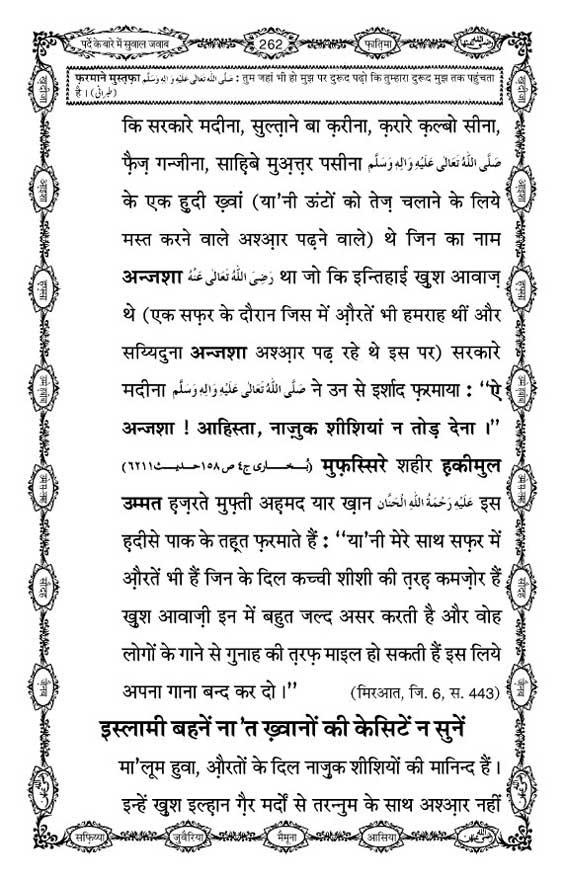 पर्दे के बारे में सुवाल जवाब
262
फ़ातिमा
फ़रमाने मुस्तफ़ा صَلَّى اللّٰهُ تَعَالٰى عَلَيْهِ وَاٰلِهٖ وَسَلَّم : तुम जहां भी हो मुझ पर दुरूद पढ़ो कि तुम्हारा दुरूद मुझ तक पहुंचता
है । (طبرانی)
कि सरकारे मदीना, सुल्त़ाने बा क़रीना, क़रारे क़ल्बो सीना,
फ़ैज़ गन्जीना, साहि़बे मुअ़त्त़र पसीना صَلَّى اللّٰهُ تَعَالٰى عَلَيْهِ وَاٰلِهٖ وَسَلَّم
के एक हुदी ख़्वां (या'नी ऊंटों को तेज़ चलाने के लिये
मस्त करने वाले अश्आ़र पढ़ने वाले) थे जिन का नाम
अन्जशा رَضِىَ اللّٰهُ تَعَالٰى عَنْهُ था जो कि इन्तिहाई ख़ुश आवाज़
थे (एक सफ़र के दौरान जिस में औ़रतें भी हमराह थीं और
सय्यिदुना अन्जशा अश्आ़र पढ़ रहे थे इस पर) सरकारे
मदीना صَلَّى اللّٰهُ تَعَالٰى عَلَيْهِ وَاٰلِهٖ وَسَلَّم ने उन से इर्शाद फ़रमाया : “ऐ
अन्जशा ! आहिस्ता, नाज़ुक शीशियां न तोड़ देना ।”
(بُخاری ج٤ ص١٥٨ حدیث٦٢١١) मुफ़स्सिरे शहीर ह़कीमुल
उम्मत ह़ज़रते मुफ़्ती अह़मद यार ख़ान عَلَيْهِ رَحْمَةُ اللّٰهِ الْحَنَّان इस
ह़दीसे पाक के तह़्त फ़रमाते हैं : “या'नी मेरे साथ सफ़र में
औ़रतें भी हैं जिन के दिल कच्ची शीशी की त़रह़ कमज़ोर हैं
ख़ुश आवाज़ी इन में बहुत जल्द असर करती है और वोह
लोगों के गाने से गुनाह की त़रफ़ माइल हो सकती हैं इस लिये
अपना गाना बन्द कर दो ।” (मिरआत, जि. 6, स. 443)
इस्लामी बहनें ना'त ख़्वानों की केसिटें न सुनें
मा'लूम हुवा, औ़रतों के दिल नाज़ुक शीशियों की मानिन्द हैं ।
इन्हें ख़ुश इल्ह़ान ग़ैर मर्दों से तरन्नुम के साथ अश्आ़र नहीं
सफ़िय्या
जुवैरिया
मैमूना
आसिया